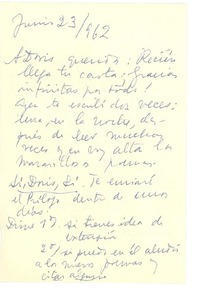 Junio 23/962
A Doris querida: Recién
llega tu carta. Gracias
infinitas por todo!
Ayer te escribí dos veces;
una, en la noche, des-
pués de leer muchas
veces y en voz alta los
maravillosos poemas.
Sí, Doris, Sí. Te enviaré
el Prólogo dentro de unos
días.
Dime 1º) si tienes idea de
extensión
2º) si puedo en él aludir
a los nuevos poemas y
citar alguno